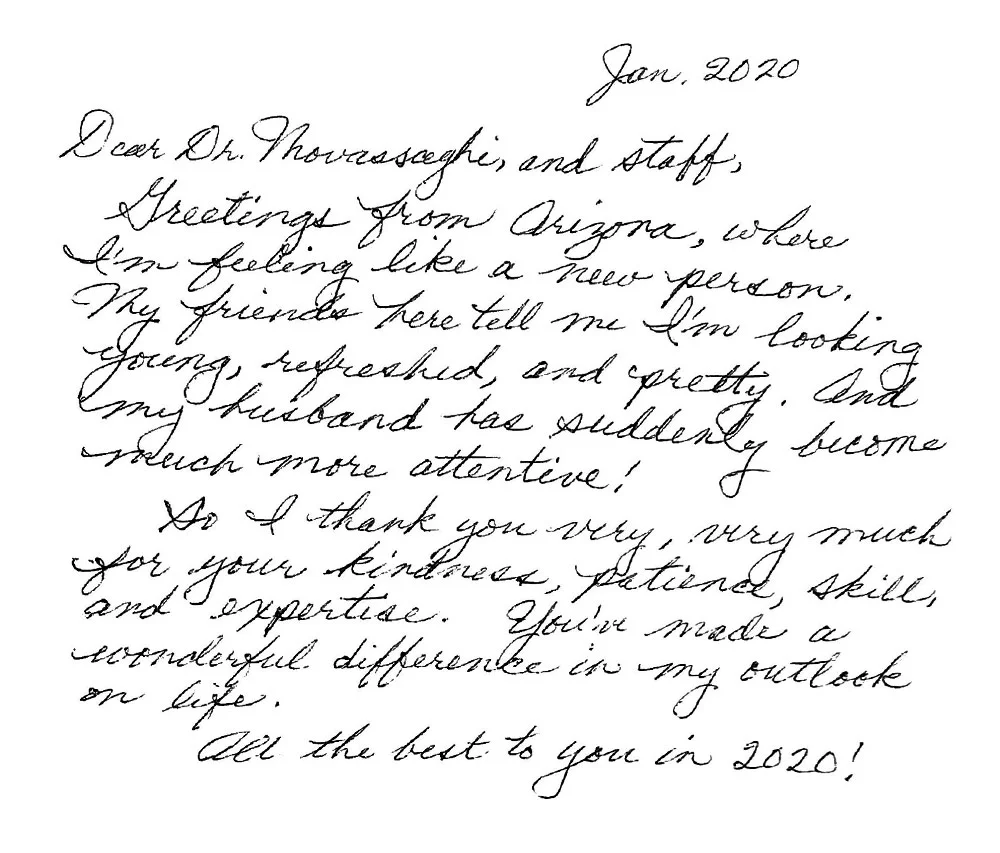 Jan. 2020
Dear Dr. Movassaghi, and staff,
Greetings from Arizona, where
I'm feeling like a new person.
My friends here tell me I'm looking
young, refreshed, and pretty. And
my husband has suddenly become
much more attentive!
So I thank you very, very much
for your kindness, patience, skill,
and expertise. You've made a
wonderful difference in my outlook
on life.
All the best to you in 2020!